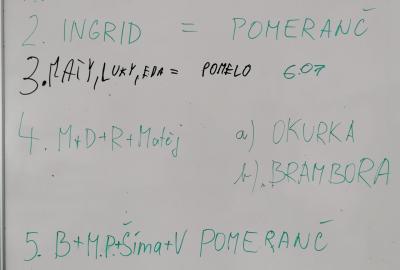 2. INGRID = POMERANČ
3. MATY, LUKY, EDA = POMELO 6.07
4. M+D+R+Matěj a) OKURKA
b) BRAMBORA
5. B+M.P.+Šíma+V POMERANČ